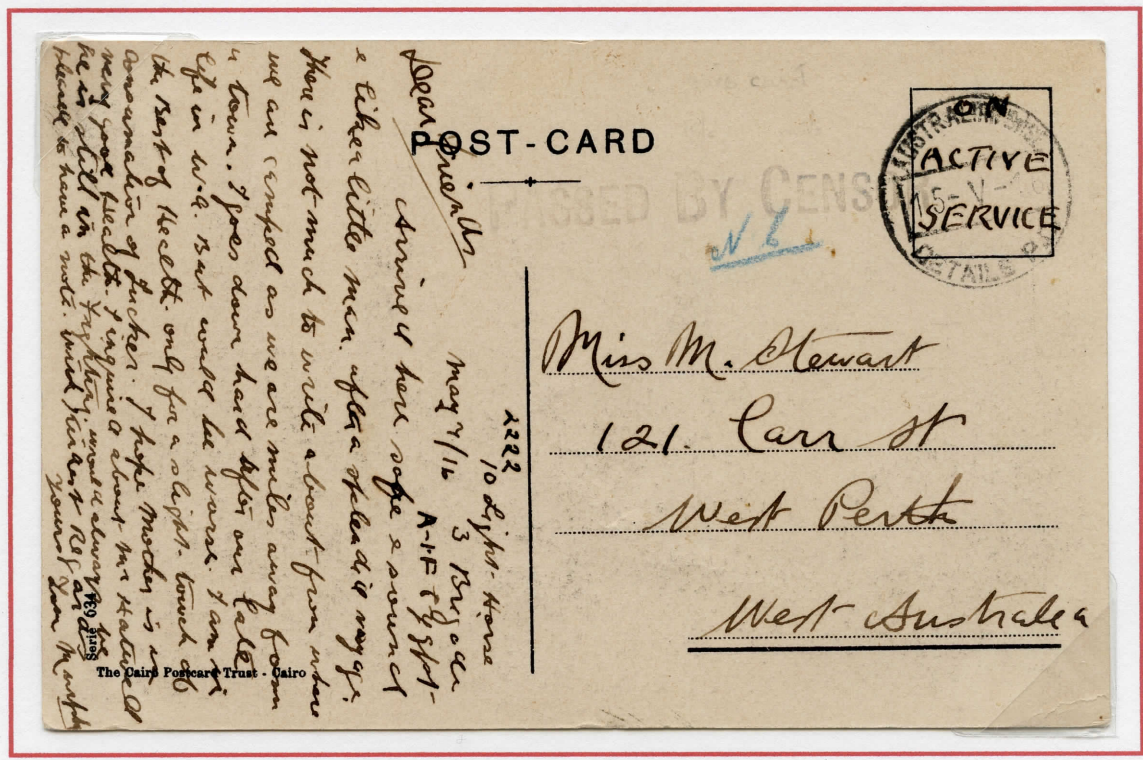 POST-CARD
ON
ACTIVE
SERVICE
PASSED BY CENSOR
AUSTRALIAN
15-V-
DETAILS P.
N Z
Miss M. Stewart
121. Carr St
West Perth
West Australia
2222
10 Light-Horse
3 Brigade
A-I-F Egypt-
May 7/16
Dear Friends
Arrived here safe & sound
& like a little man. after a splendid voyage.
There is not much to write about from where
we are camped as we are miles away from
a town. I goes down hard after our
life in W.A. But could be worse. I am in
the Best of Health. only for a slight- touch of
consumation of Tucker. I hope Mother is in
very good Health. I inquired about Mr
he is still in the fighting. would always be
pleased to have a note. with Kindest Regards
yours Murphy
Serie 634
The Cairo Postcard Trust - Cairo